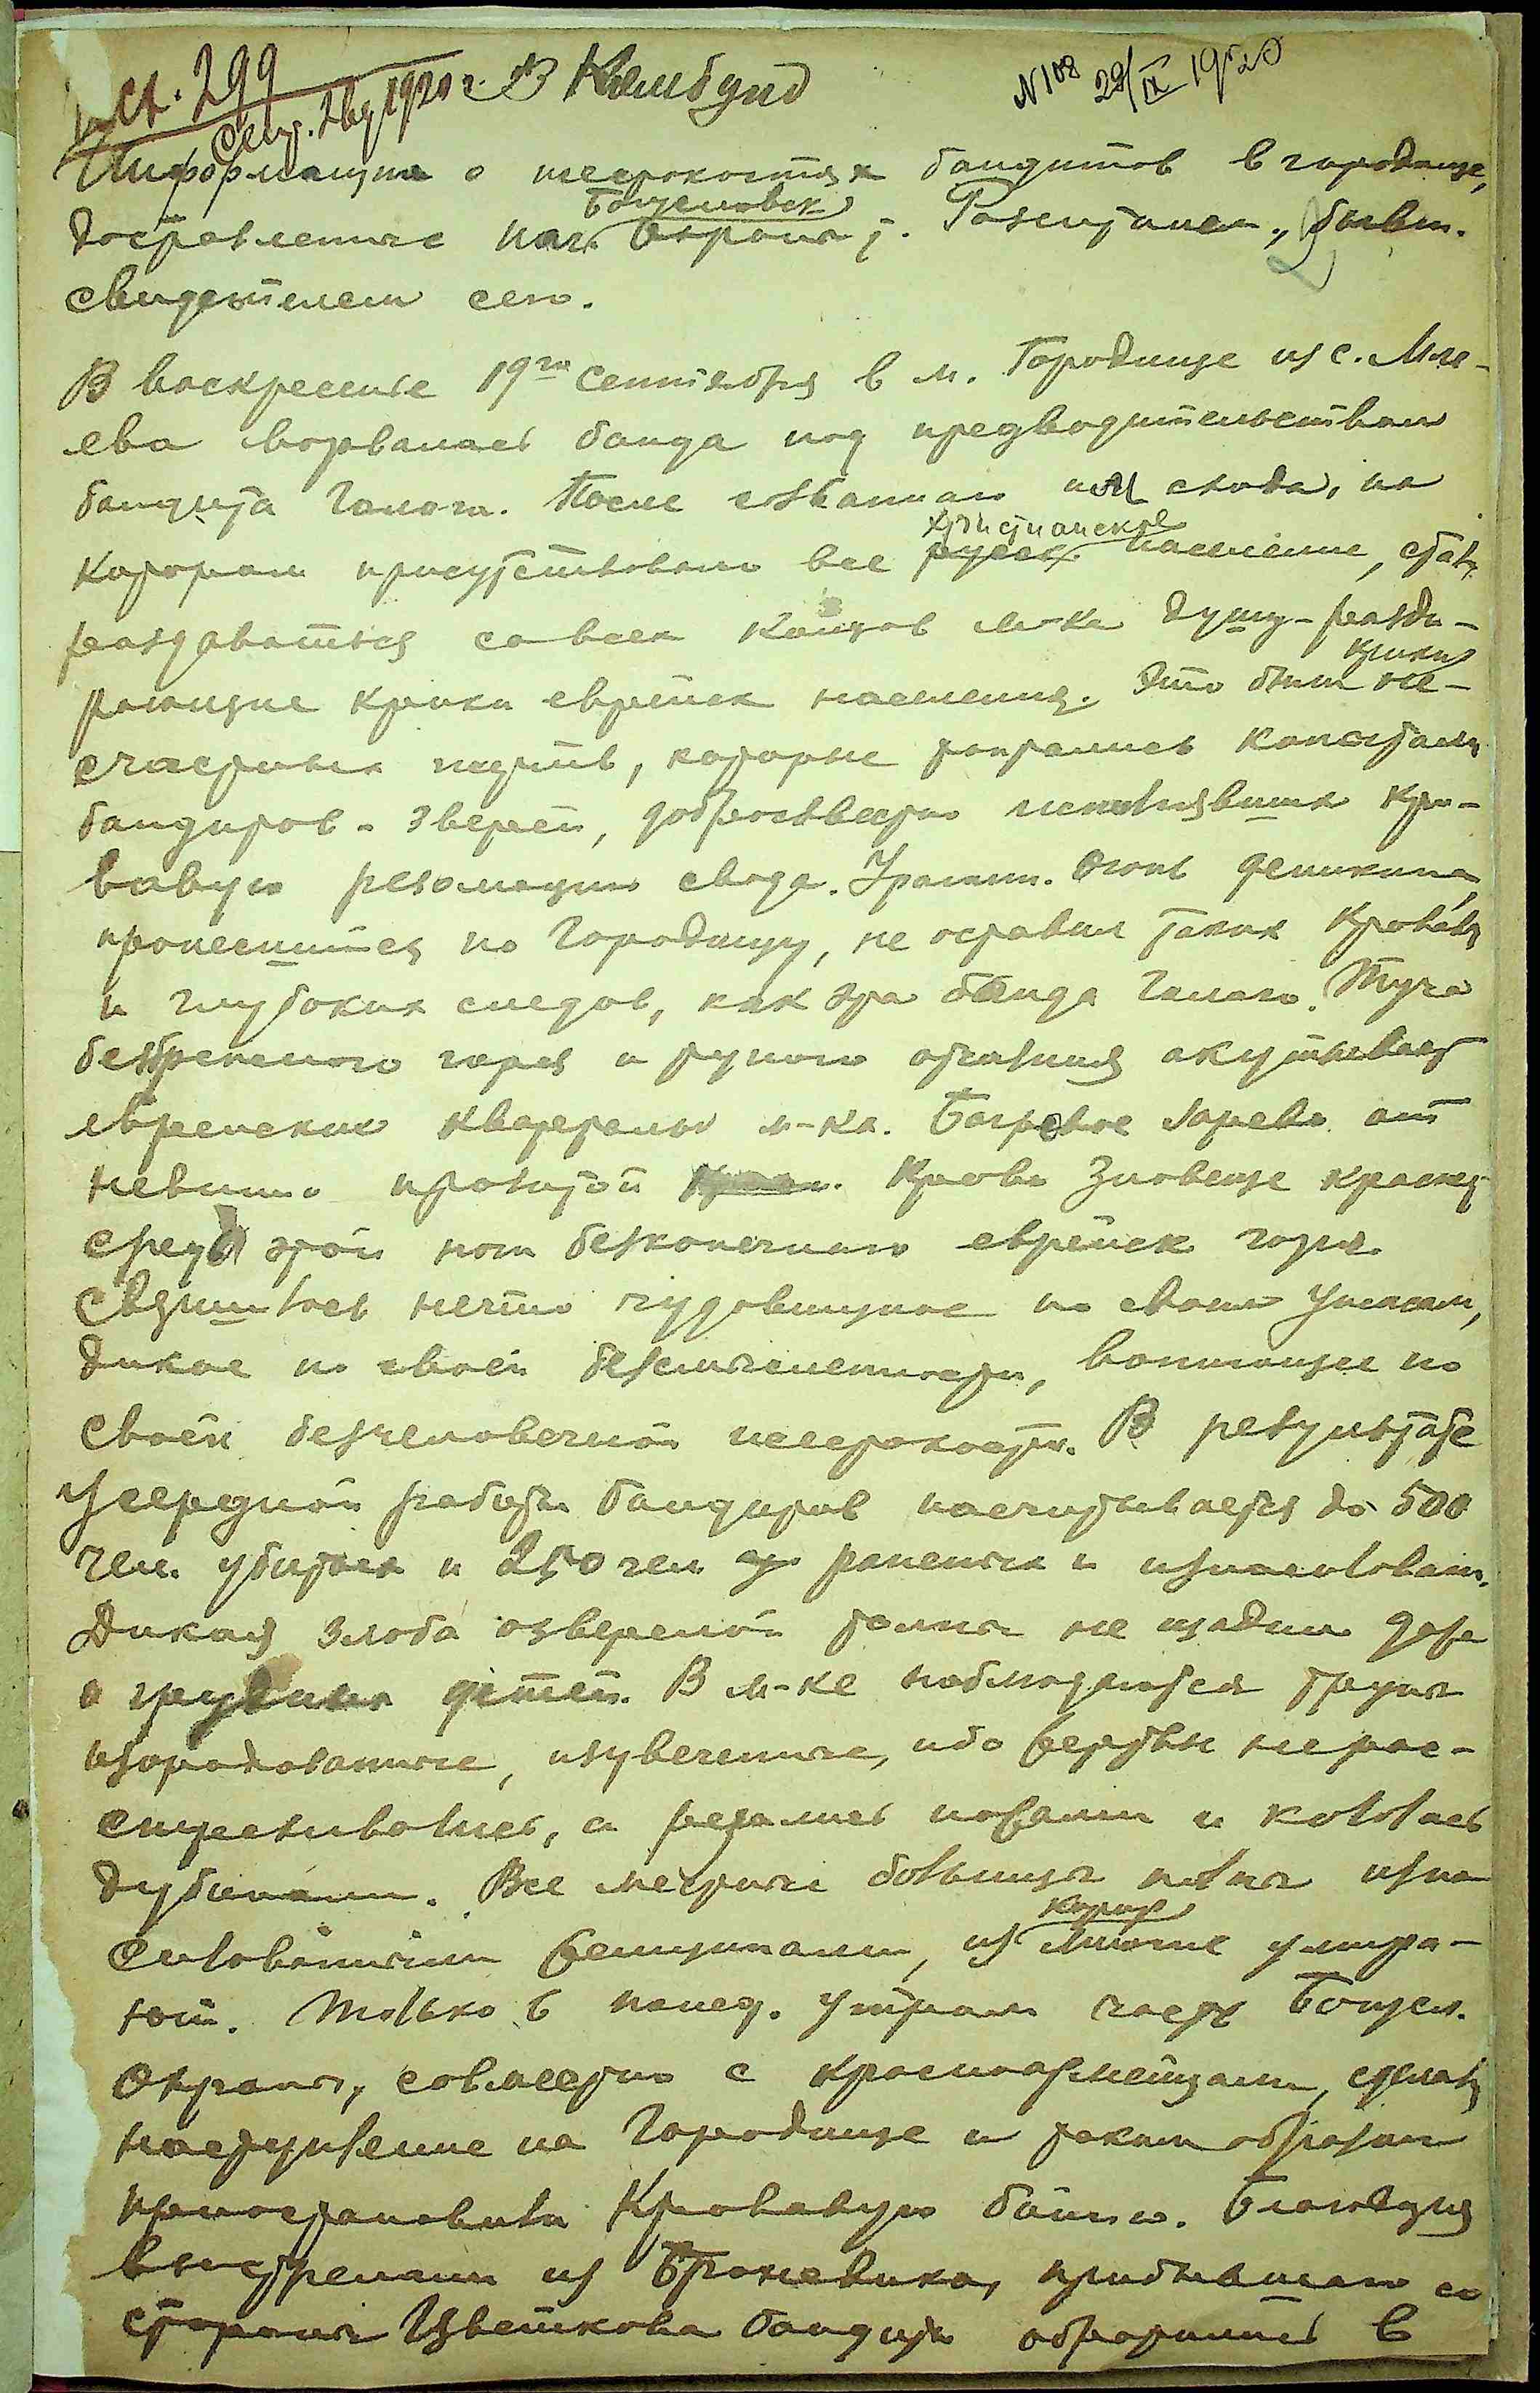 ст. 299
Сент. 28 д 1920 г. В Комбунд
N 108 29/IX 1920
Информация о жестокостях бандитов в городище,
Богуславск
доставленные нач. охраны т. , бывш.
свидетелем сего.
В воскресенье 19го сентября в м. Городище из с. Мле-
ева ворвалась банда под предводительством
бандита Голого. После созванного ими схода, на
христианское
котором присутствовало все русск. население, стали
раздаваться со всех концов м-ка душу-разди-
крики
рающие крики еврейск населения. Это были не-
счастных жертв, которые терзались
бандитов-зверей, добросовестно исполнявших кро-
вавую резолюцию схода. Ураган. огонь деникина,
пронесшийся по Городищу, не оставил таких кровав
и глубоких следов, как эта банда Голого. Туча
безбрежного горя и отчаяния окутывает
еврейские кварталы м-ка. Багровое зарево от
невинно пролитой крови зловеще краснеет
среди этой безконечного еврейск горя.
Свершилось нечто чудовищное по своим ужасам,
дикое по своей безсмысленности, вопиющее по
своей безчеловечной жестокости. В результате
усердной работы бандитов насчитывается до 500
чел. убитых и 250 чел раненых и изнасилован.
Дикая злоба озверелой толпы не щадила даже
и грудных детей. В м-ке наблюдаются трупы
изуродованные, изувеченные, ибо жертвы не рас-
стреливались, а резались ножами и кололись
дубинами. Все местные больницы полны изна
которых
силованными женщинами, из многие умира-
ют. Только в понед. утром часть Богусл.
Охраны, совместно с красноармейцами, сделали
наступление на Городище и таким образом
приостановили кровавую бойню. Благодаря
выстрелами из Броневика, прибывшего со
стороны Цветкова бандиты обратились в